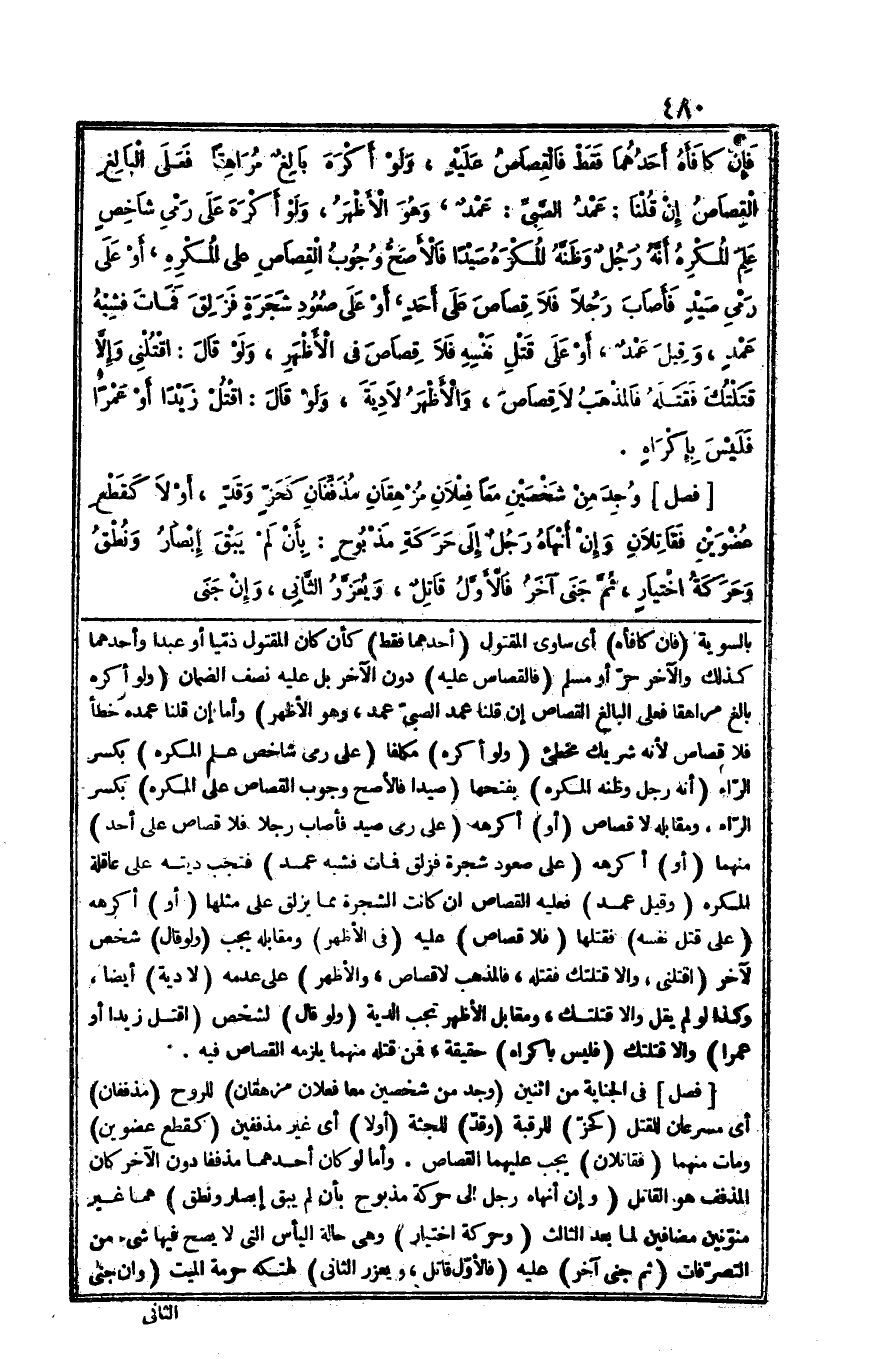 ٤٨٠
فَإِنْ كافَأَهُ أَحَدُهُمَا فَقَطْ فَالْقِصاصُ عَلَيْهِ ، وَلَوْ أَكْرَهَ بَالِغٌ مُرَاهِقًا فَعَلَى الْبَالِغِ
الْقِصَاصُ إِنْ قُلْنَا : عَمْدُ الصَّبِىِّ : عَمْدٌ ، وَهُوَ الْأَظْهَرُ ، وَلَوْ أَكْرَهَ عَلَى رَمْىِ شاخِصٍ
عَلِمَ الْمُكْرِهُ أَنَّهُ رَجُلٌ وَظَنَّهُ الْمُكْرَهُ صَيْدًا فَالْأَصَحُّ وُجُوبُ الْقِصَاصِ على الْمُكْرِهِ ، أَوْ عَلَى
رَمْىِ صَيْدٍ فَأَصَابَ رَجُلًا فَلَا قِصَاصَ عَلَى أَحَدٍ ، أَوْ عَلَى صُعُودِ شَجَرَةٍ فَزَلِقَ فَمَاتَ فَشِبْهُ
عَمْدٍ ، وَقِيلَ عَمْدٌ ، أَوْ عَلَى قَتْلِ نَفْسِهِ فَلَا قِصَاصَ فى الْأَظْهَرِ ، وَلَوْ قَالَ : اقْتُلْنِى وَإِلَّا
قَتَلْتُكَ فَقَتَلَهُ فَالمذْهَبُ لَا قِصَاصَ ، وَالْأَظْهَرُ لَا دِيَةَ ، وَلَوْ قَالَ : اقْتُلْ زَيْدًا أَوْ عَمْرًا
فَلَيْسَ بِإِكْرَاهٍ .
[ فصل ] وُجِدَ مِنْ شَخْصَيْنِ مَعًا فِعْلَانِ مُزْهِقَانِ مُذَفِّفَانِ كَحَزٍّ وَقَدٍّ ، أَوْ لَا كَقَطْعِ
عُضْوَيْنِ فَقَاتِلَانِ وَإِنْ أَنْهَاهُ رَجُلٌ إِلَى حَرَكَةِ مَذْبُوحٍ : بِأَنْ لَمْ يَبْقَ إِبْصَارٌ وَنُطْقٌ
وَحَرَكَةُ اخْتِيَارٍ ، ثُمَّ جَنَى آخَرُ فَالْأَوَّلُ قَاتِلٌ ، وَيُعَزَّرُ الثَّانِى ، وَإِنْ جَنَى
بالسوية (فان كافأه) أى ساوى المقتول (أحدهما فقط) كأن كان المقتول ذميا أو عبدا وأحدهما
كذلك والآخر حرّ أو مسلم (فالقصاص عليه) دون الآخر بل عليه نصف الضمان (ولو أكره
بالغ مراهقا فعلى البالغ القصاص إن قلنا عمد الصبىّ عمد ، وهو الأظهر) وأما إن قلنا عمده خطأ
فلا قصاص لأنه شريك مخطئ (ولو أكره) مكلفا (على رمى شاخص علم المكره) بكسر
الرّاء (أنه رجل وظنه المكره) بفتحها (صيدا فالأصح وجوب القصاص على المكره) بكسر
الرّاء ، ومقابله لا قصاص (أو) أكرهه (على رمى صيد فأصاب رجلا فلا قصاص على أحد)
منهما (أو) أكرهه (على صعود شجرة فزلق فمات فشبه عمد) فتجب ديته على عاقلة
المكره (وقيل عمد) فعليه القصاص ان كانت الشجرة مما يزلق على مثلها (أو) أكرهه
(على قتل نفسه) فقتلها (فلا قصاص) عليه (فى الأظهر) ومقابله يجب (ولو قال) شخص
لآخر (اقتلنى ، والا قتلتك فقتله ، فالمذهب لا قصاص ، والأظهر) على عدمه (لا دية) أيضا ،
وكذا لو لم يقل والا قتلتك ، ومقابل الأظهر تجب الدية (ولو قال) لشخص (اقتل زيدا أو
عمرا) والا قتلتك (فليس باكراه) حقيقة ، فمن قتله منهما يلزمه القصاص فيه .
[ فصل ] فى الجناية من اثنين (وجد من شخصين معا فعلان مزهقان) للروح (مذففان)
أى مسرعان للقتل (كحزّ) للرقبة (وقدّ) للجثة (أولا) أى غير مذففين (كقطع عضوين)
ومات منهما (فقاتلان) يجب عليهما القصاص . وأما لو كان أحدهما مذففا دون الآخر كان
المذفف هو القاتل (وإن أنهاه رجل الى حركة مذبوح بأن لم يبق إبصار ونطق) هما غير
منوّنين مضافين لما بعد الثالث (وحركة اختيار) وهى حالة اليأس التى لا يصح فيها شىء من
التصرّفات (ثم جنى آخر) عليه (فالأوّل قاتل ، ويعزر الثانى) لهتكه حرمة الميت (وان جنى
الثانى